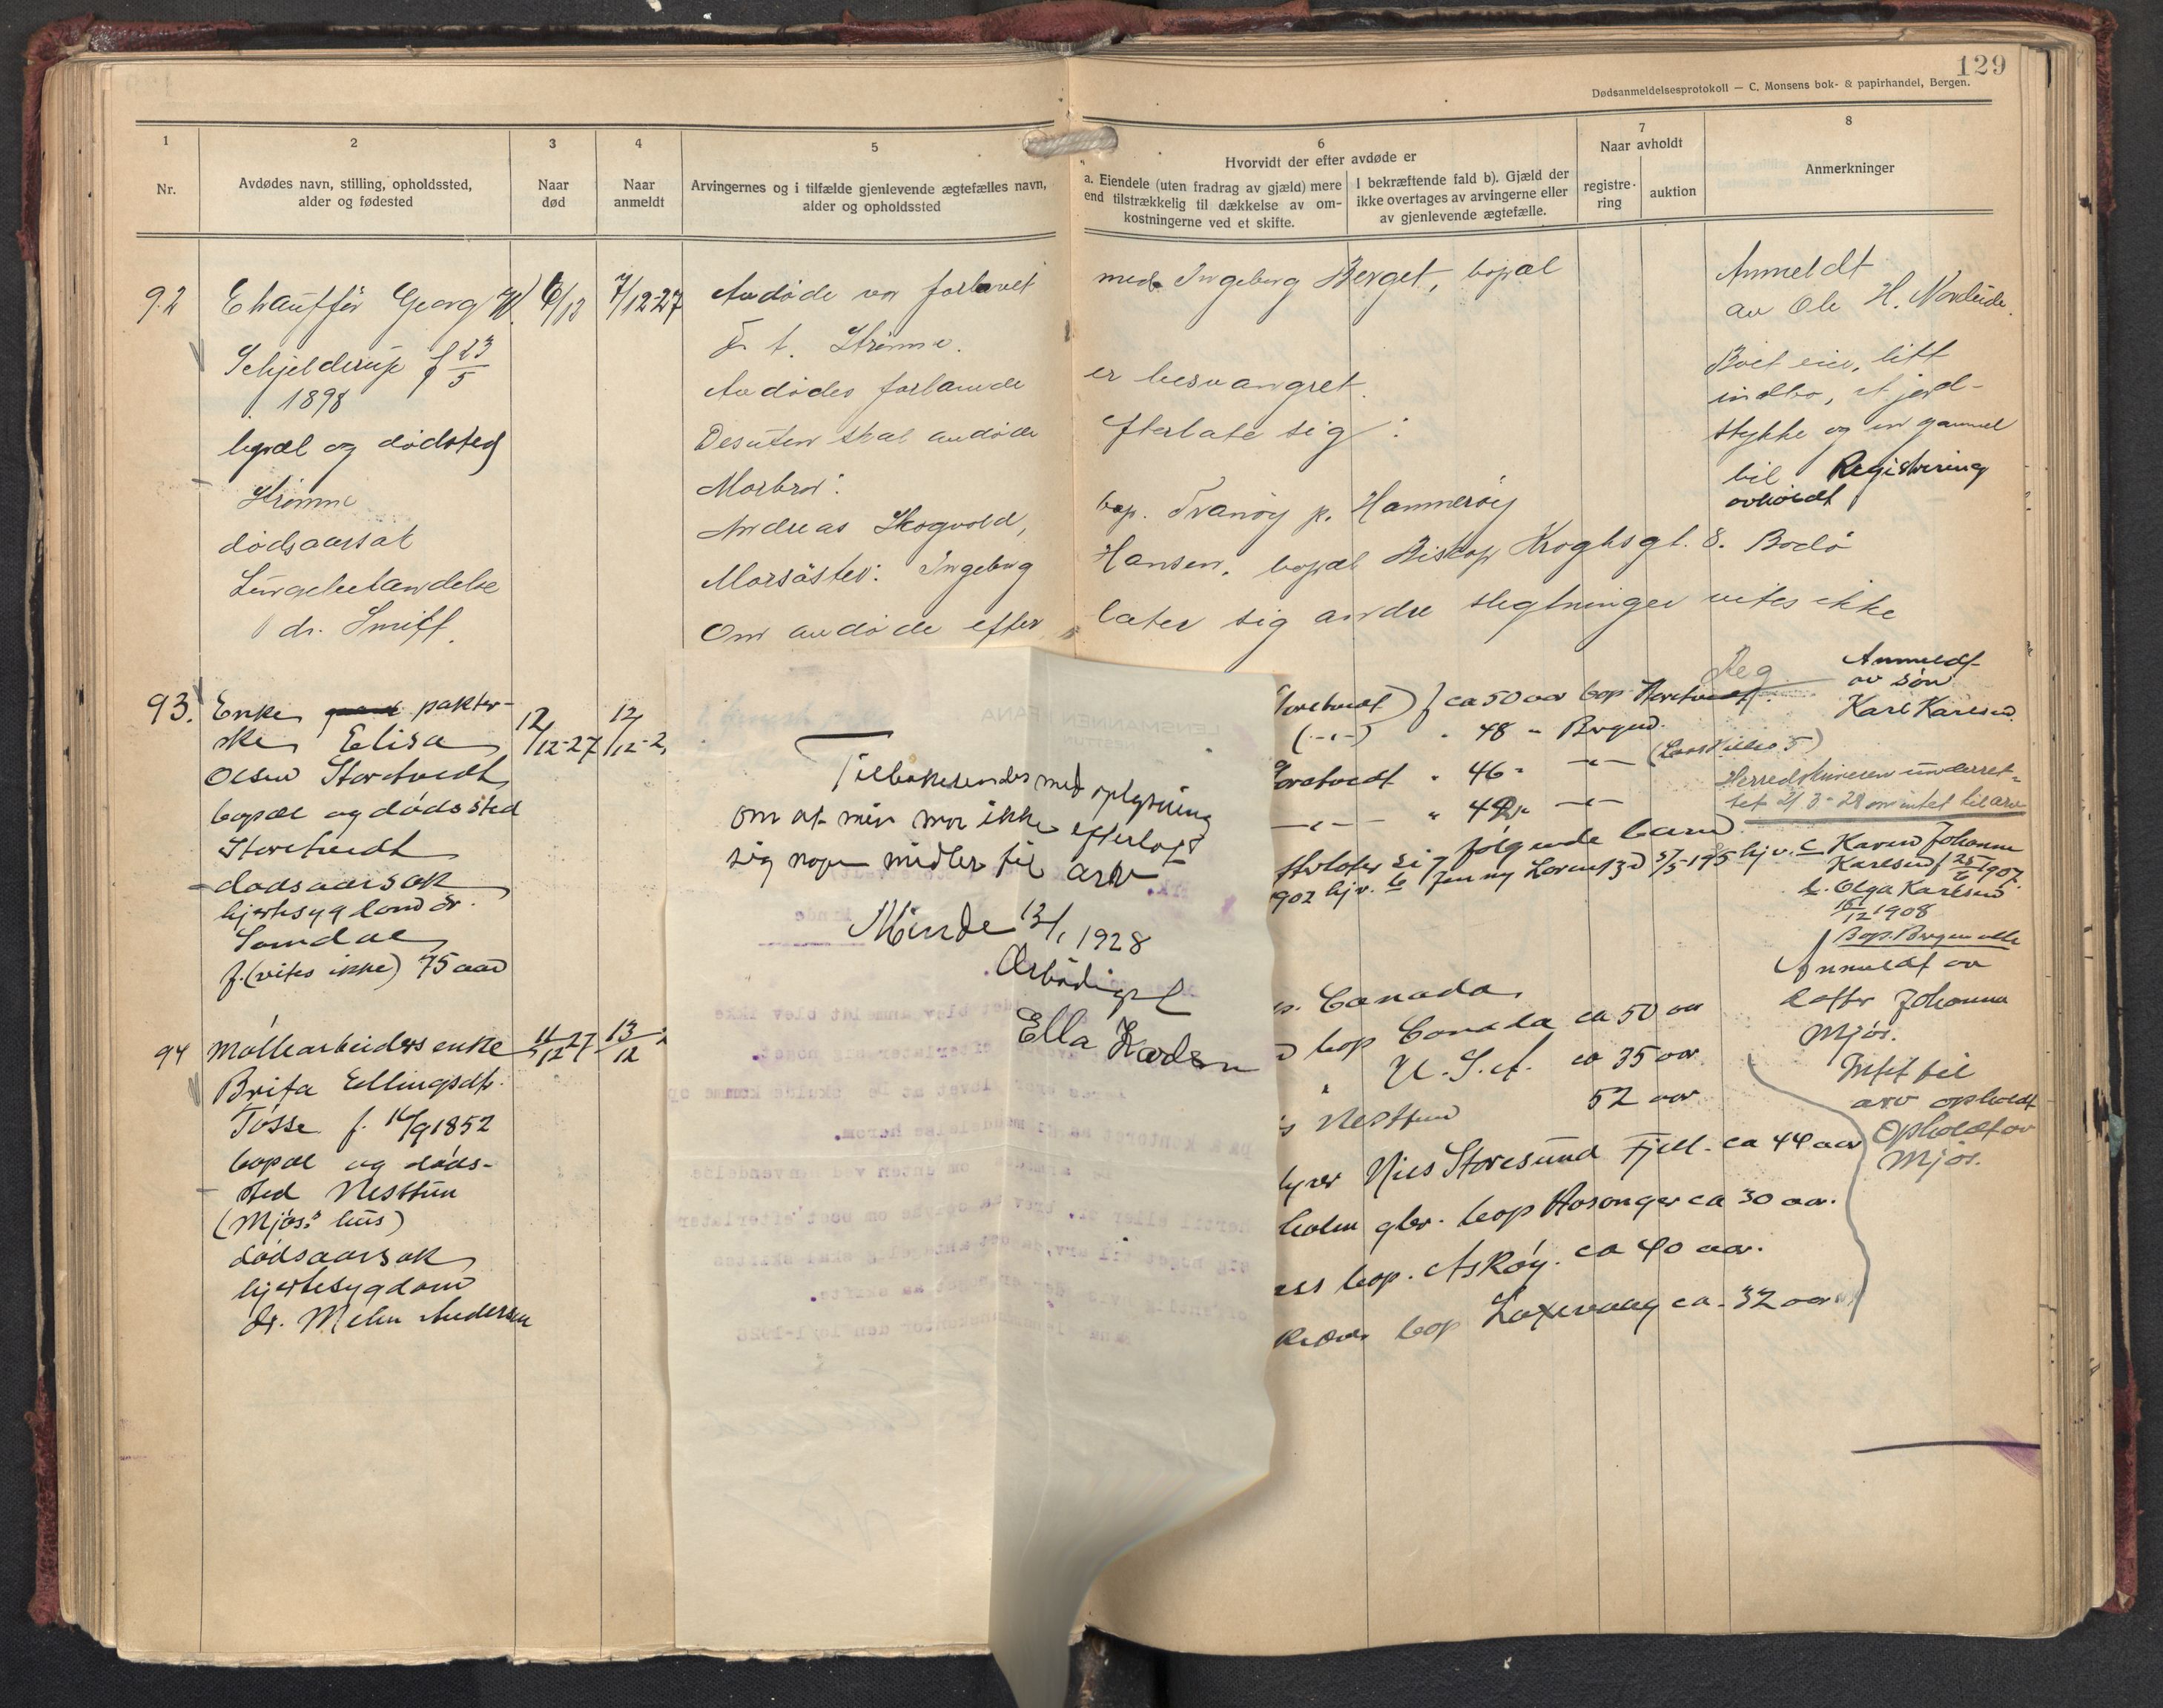 129
Dødsanmeldelsesprotokoll — C. Monsens bok- & papirhandel, Bergen.
1
Nr.
2
Avdødes navn, stilling, opholdssted,
alder og fødested
3
Naar
død
4
Naar
anmeldt
5
Arvingernes og i tilfælde gjenlevende ægtefælles navn,
alder og opholdssted
6
Hvorvidt der efter avdøde er
a. Eiendele (uten fradrag av gjæld) mere
end tilstrækkelig til dækkelse av om-
kostningerne ved et skifte.
I bekræftende fald b). Gjæld der
ikke overtages av arvingerne eller
av gjenlevende ægtefælle.
7
Naar avholdt
registre-
ring
auktion
8
Anmerkninger
92
Chauffør Georg W.
Schjelderup f 23/5
1898
bopæl og dødsted
Strømme
dødsaarsak
Lungebetændelse
dr. Smitt.
6/12
7/12-27
Avdøde var forlovet med Ingeborg Berget, bopæl
F. t. Strømme.
Avdødes forlovede er besvangret.
Desuten skal avdøde efterlate sig:
Morbror:
Andreas Skogvold, bop. Tranøy p. Hammerøy
Morsøster: Ingeborg Hansen, bopæl Biskop Kroghsgt. 8. Bodø
Om avdøde efterlater sig andre slegtninger vites ikke
Anmeldt
av Ole H. Nordeide.
Boet eier, litt
indbo, et jord-
stykke og en gammel
bil Registrering
avholdt
93.
Enke pakter-
ske Elisa
Olsen Storetvedt
bopæl og dødssted
Storetvedt
dødsaarsak
hjertesyg dom dr.
f. (vites ikke) 75 aar
12/12-27
12/12-2
Storetvedt) f ca 50 aar bop Storetvedt.
(-"-) " 48 " Bergen.
Storetvedt " 46 " -"-
-"- " 42 " -"-
følgende barn
Reg
Anmeldt
av søn
Karl Karlsen
Herredskriveren underret-
tet 21/3-28 om intet til arv
c Karen Johanne
Karlsen f 25/6 1907.
d. Olga Karlsen
12 1908
Bop. Bergen alle
94
Møllearbeiders enke
Brita Ellingsdtr.
Tøsse f. 14/9 1852
bopæl og døds-
sted Nesttun
(Mjøs's hus)
dødsaarsak
hjertesygdom
dr. Mohn Andersen
11/12 27
13/12
Canada
bop Canada ca 50 aar
" U. S. A. ca 35 aar
Nesttun 52 aar
Nils Storesund Fjell. ca 44 aar
bop Hosanger ca 30 aar.
bop. Askøy. ca 40 aar.
bop Laxevaag ca. 32 aar
Anmeldt av
datter Johanna
Mjøs.
Intet til
arv opholdt
Opholdt av
Mjøs.
Tilbakesendes med oplysning
om at min mor ikke efterlot
sig nogen midler til arv
Minde 13/1 1928
Ærbødigst
Ella Karlsen